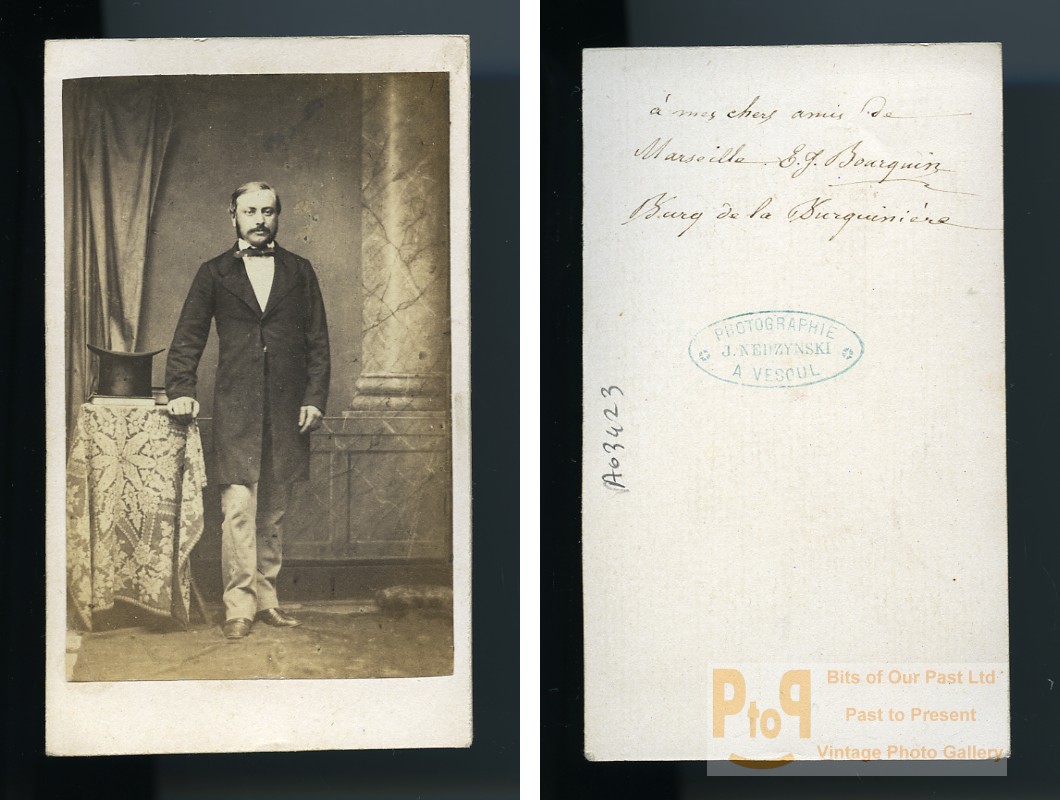 à mes chers amis de
Marseille. E. J. Bourquin
Burg de la Burquinière
PHOTOGRAPHIE
J. NEDZYNSKI
A VESOUL
A03423
PtoP
Bits of Our Past Ltd
Past to Present
Vintage Photo Gallery